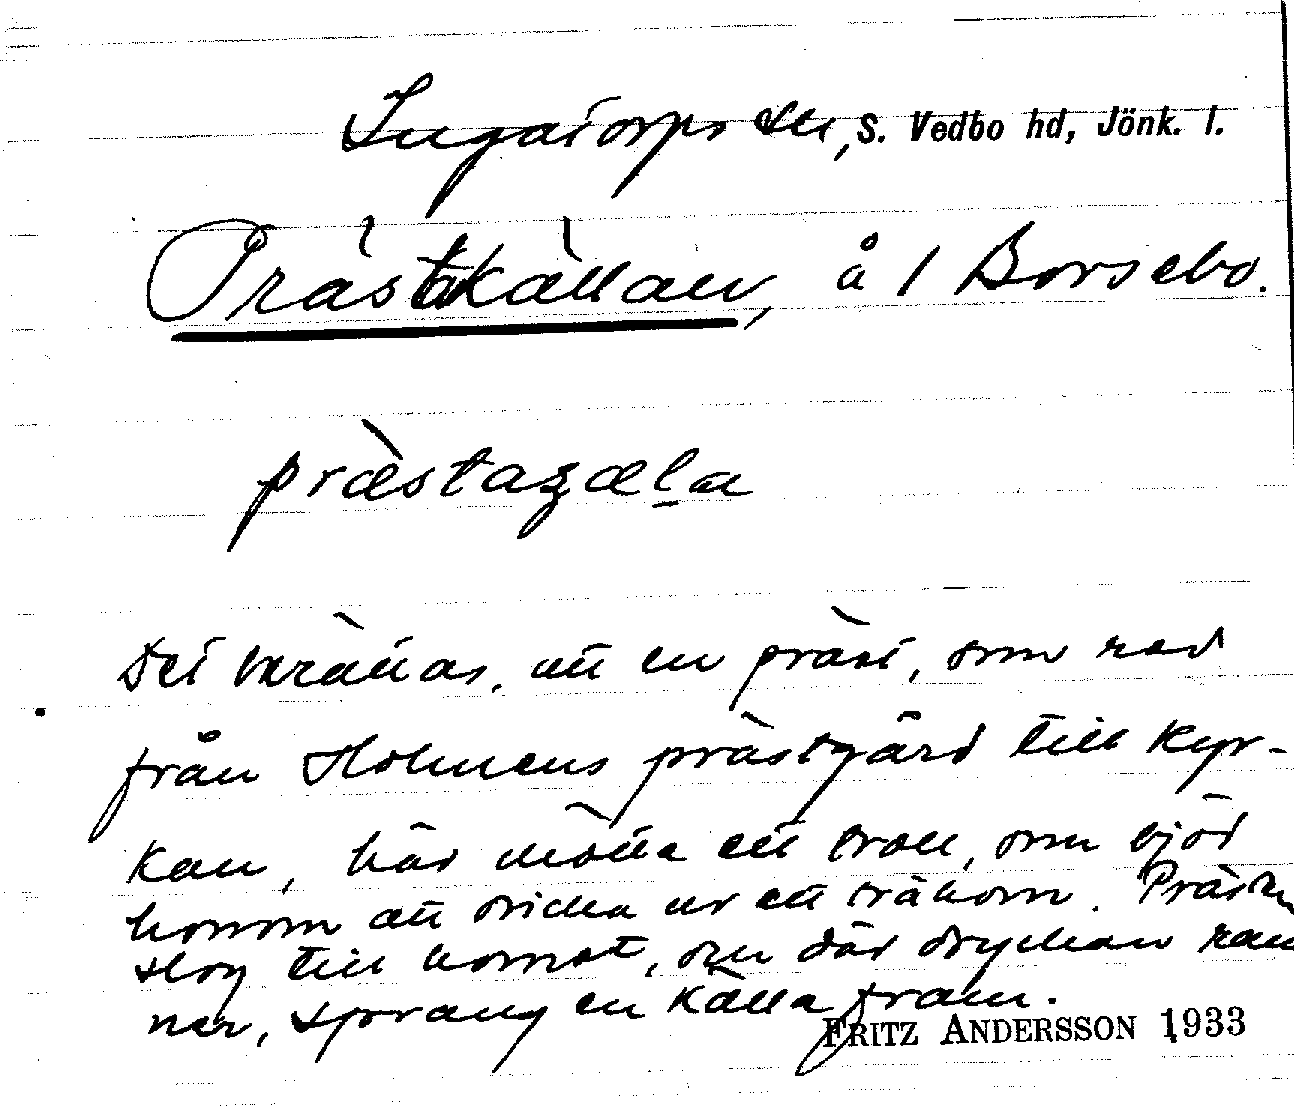 Ingatorps sn, S. Vedbo hd, Jönk. l.
Prästkällan, å 1 Borsebo.
præstaʒæla
Det berättas, att en präst, som red
från Holmens prästgård till kyr-
kan, här mötte ett troll, som bjöd
honom att dricka ur ett trähorn. Prästen
slog till hornet, och där drycken rann
ner, sprang en källa fram.
FRITZ ANDERSSON 1933